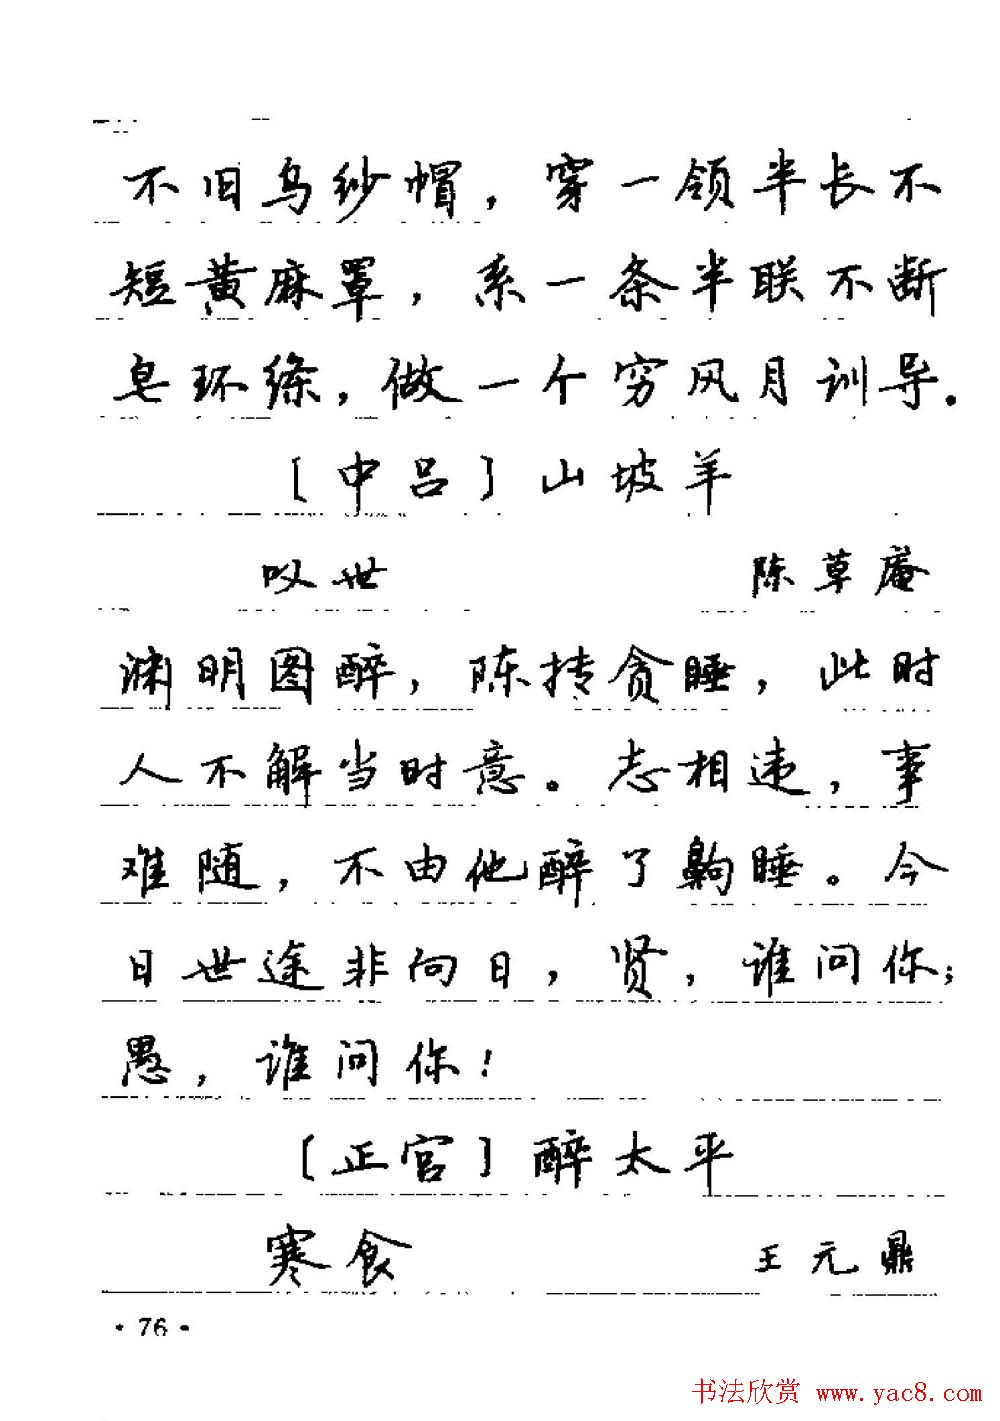 不旧乌纱帽，穿一领半长不
短黄麻罩，系一条半联不断
皂环绦，做一个穷风月训导。
〔中吕〕山坡羊
叹世 陈草庵
渊明图醉，陈抟贪睡，此时
人不解当时意。志相违，事
难随，不由他醉了齁睡。今
日世途非向日，贤，谁问你；
愚，谁问你！
〔正宫〕醉太平
寒食 王元鼎
·76·
书法欣赏 www.yac8.com